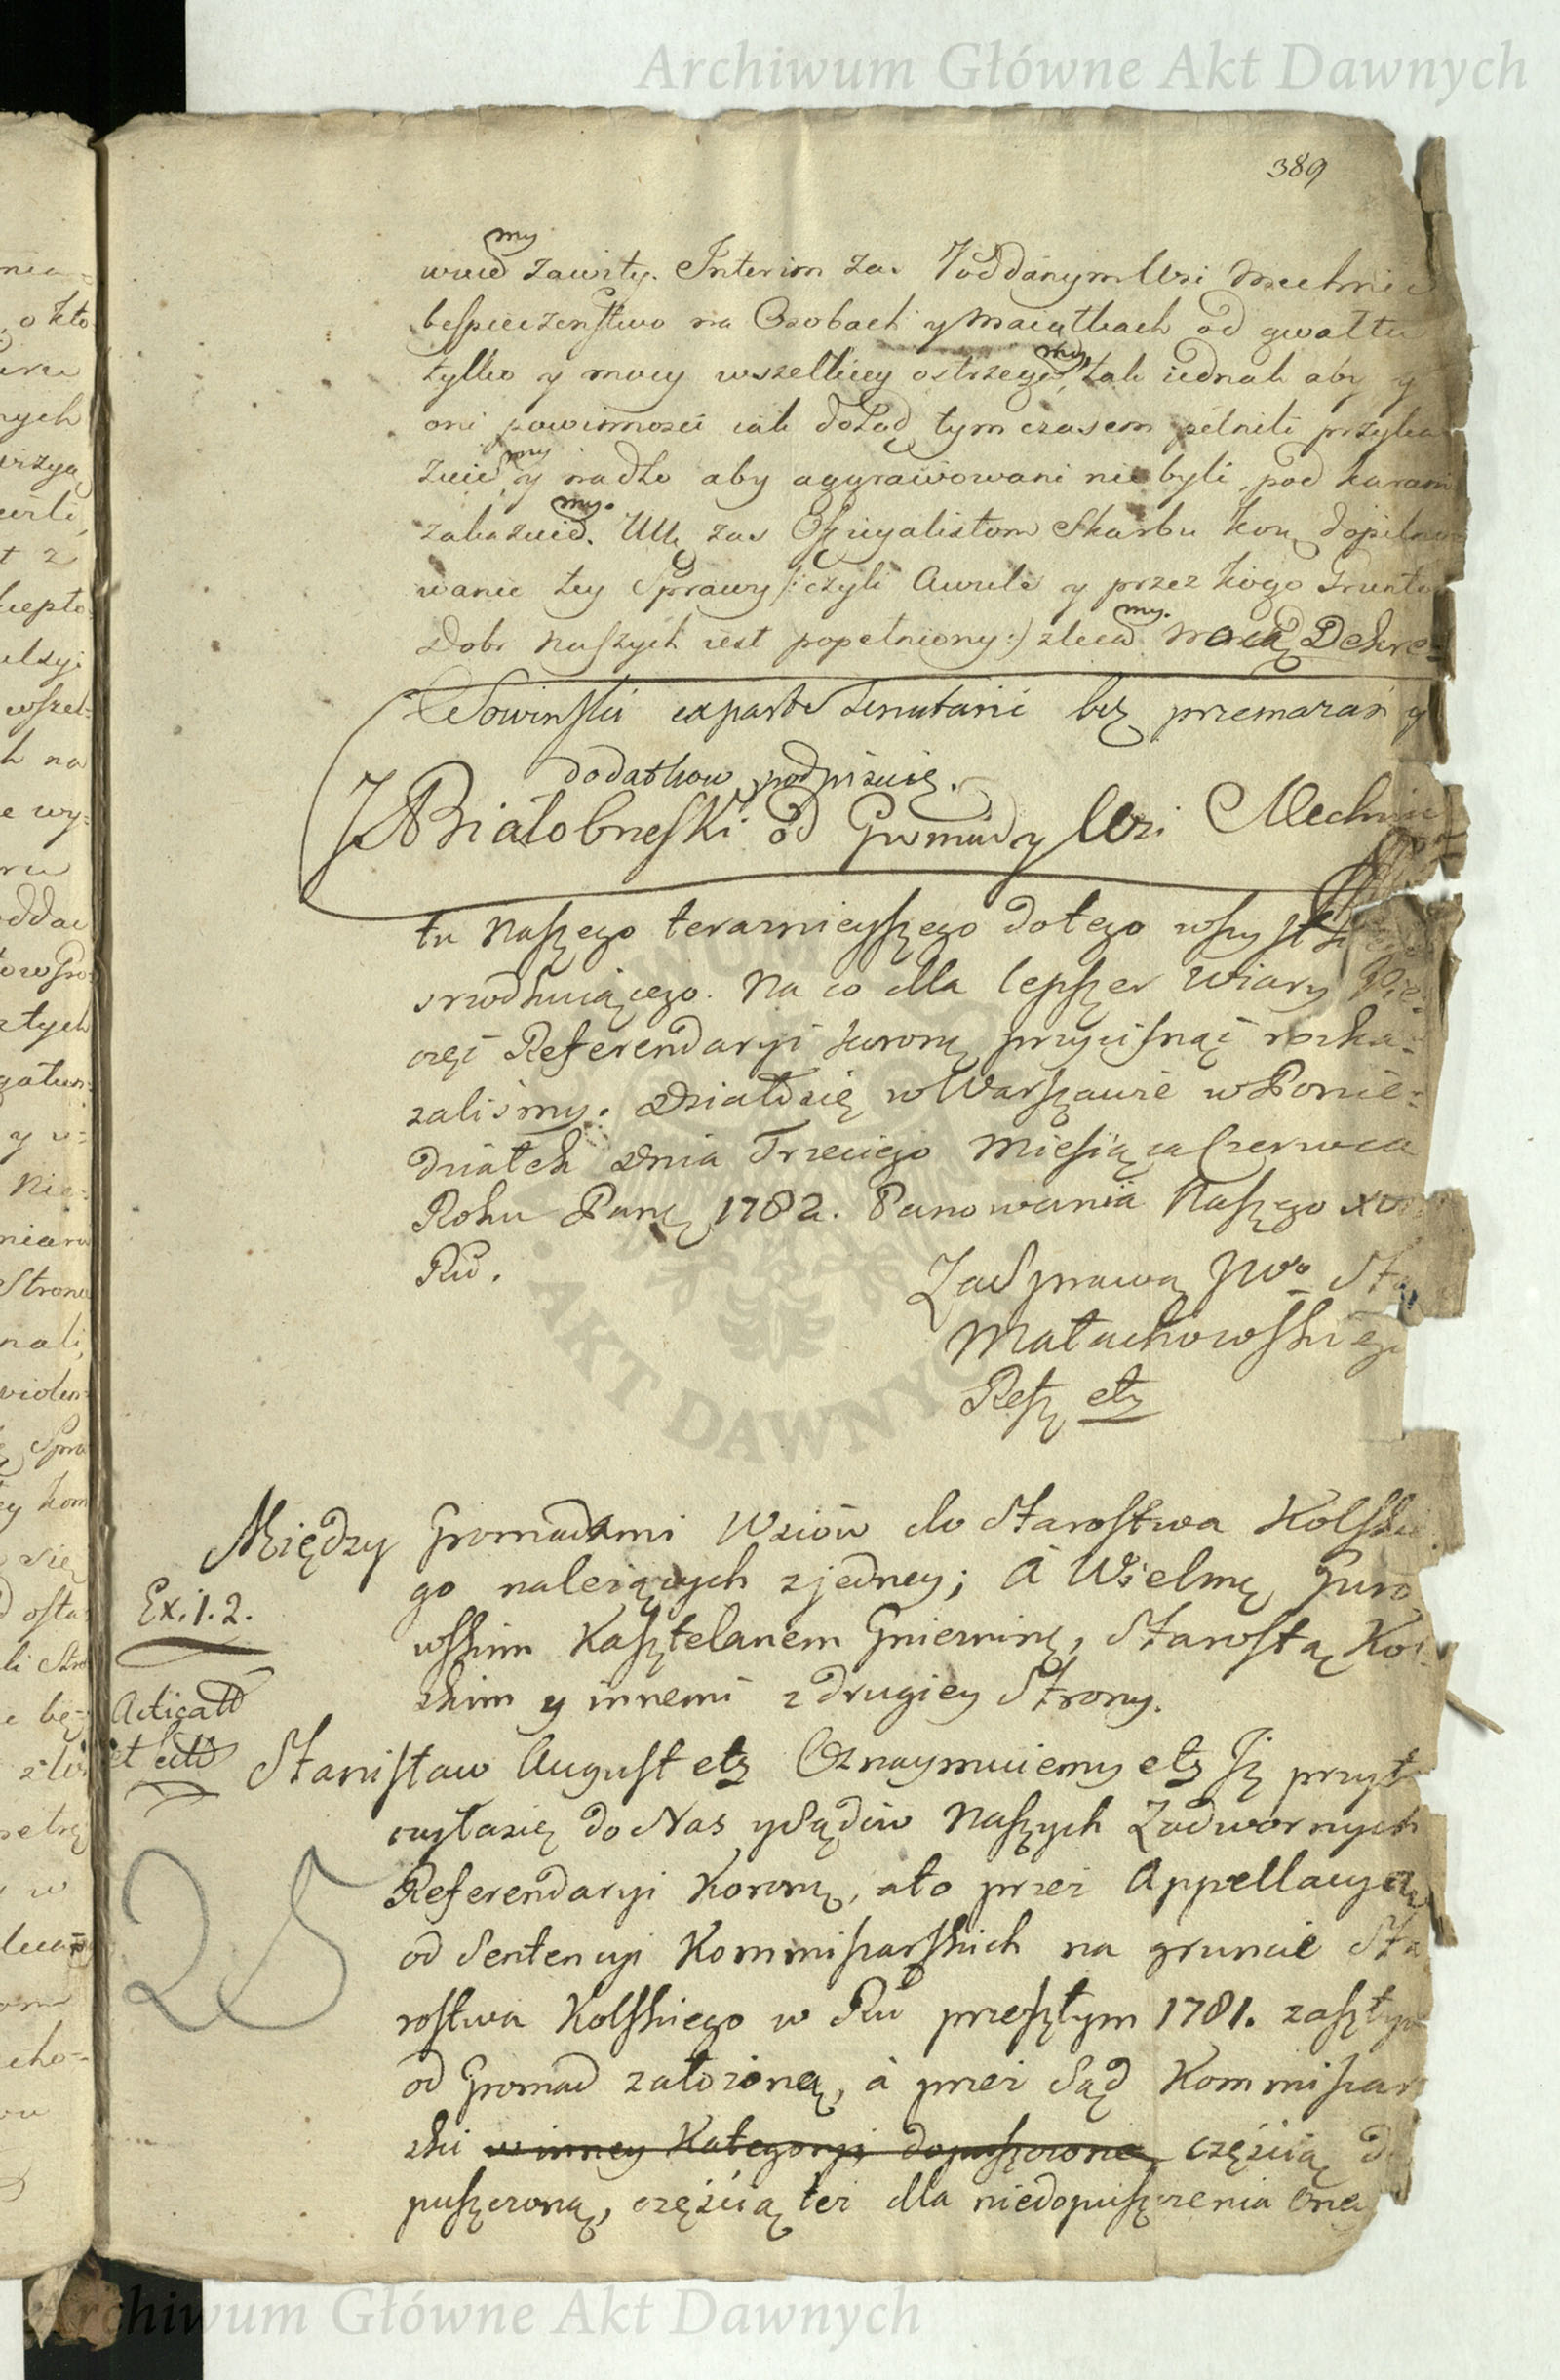 Archiwum Główne Akt Dawnych
389
my
wuie zawity. Interim zas Poddanym Wsi Mechni
bespieczenstwo na Osobach y Maiątkach od gwałtu
my,
tylko y mocy wszelkiey ostrzega, tak iednak aby y
oni powinnosci iak dotąd tym czasem pełnili przyka
my
zuie, y nadto aby aggrawowani nie byli, pod karami
my.
zakazuie. Ur. zas Officyalistom Skarbu Kor. dopilno
wanie tey Sprawy /: czyli Awuls y przez kogo Gruntu
my.
Dobr Naszych iest popełniony :/ zleca mocą Dekre=
Sowinski ex parte Tenutarii bez przemazan y
dodatkow podpisuię.
JABiałobrzeski od Gromady Wsi Mechnic
tu Naszego teraznieyszego do tego wszystk
srzodkuiącego. Na co dla lepszey Wiary Pie=
częć Referendaryi Koronę przycisnąć rozka=
zalismy. Działo się w Warszawie w Ponie=
działek Dnia Trzeciego Miesiąca Czerwca
Roku Pańę 1782. Panowania Naszego
Ru.
Za Sprawą JWo Sta
Małachowskieg
Refę etz
Między Gromadami Wsiow do Starostwa Kolskie
go należących z jedney; à Wielmę Guro
wskim Kasztelanem Gniezninę, Starostą Kol=
skim y innemi z drugiey Strony.
Ex. 1. 2.
Acticatt
et
Stanisław August etz Oznaymuiemy etz Jż przyt
czyła się do Nas y Sądow Naszych Zadwornych
Referendaryi Koronę, a to przez Appellacyą
od Sentencyi Kommissarskich na gruncie Sta
rostwa Kolskiego w Ru przeszłym 1781. zaszłym
od Gromad założoną, à przez Sąd Kommissar
ski w inney Kategoryi dopuszczoną częścią do
puszczoną, częścią też dla niedopuszczenia oney
25
Archiwum Główne Akt Dawnych